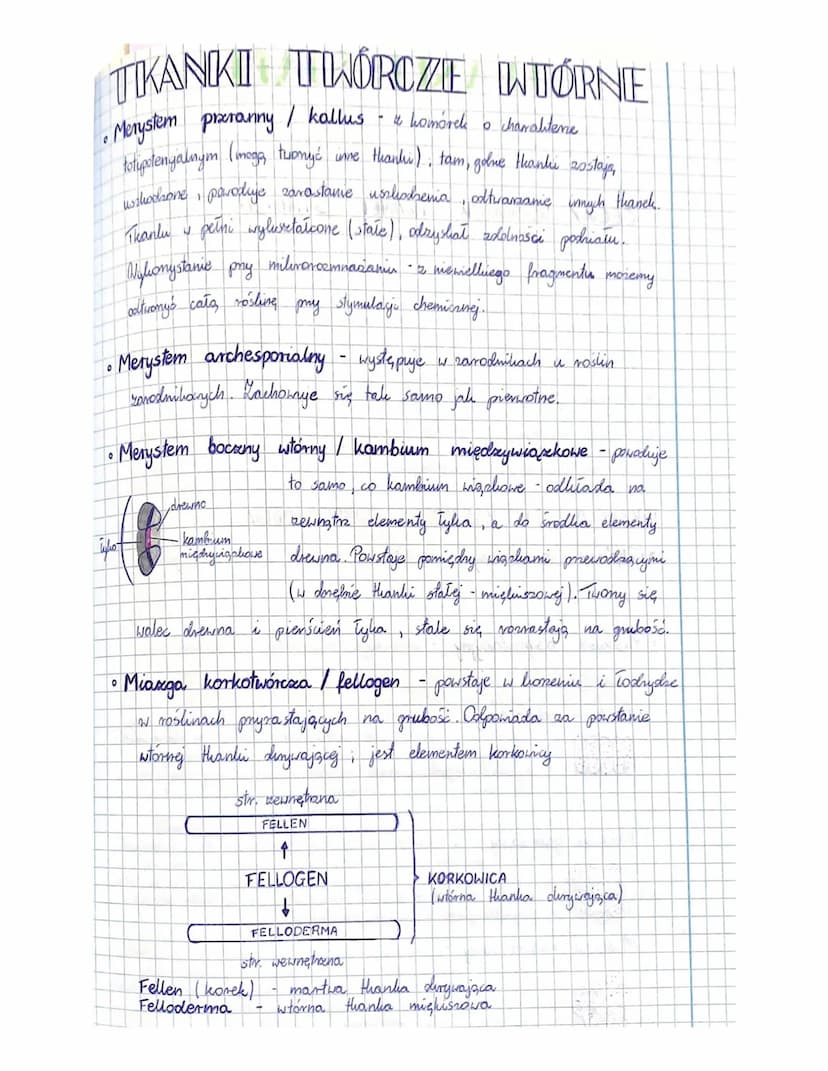 TKANKI TWÓRCZE WTÓRNE
• Merystem przyranny / kallus - z komórek o charakterze
totipotencjalnym (mogą tworzyć inne tkanki), tam, gdzie tkanki zostają
uszkodzone, powoduje zarastanie uszkodzenia, odtwarzanie innych tkanek.
Tkanki w pełni wykształcone (stałe), odzyskał zdolności podziału.
Wykorzystanie przy mikrorozmnażaniu - z niewielkiego fragmentu możemy
odtworzyć całą roślinę przy stymulacji chemicznej.
• Merystem archesporialny - występuje w zarodnikach u roślin
zarodnikowych. Zachowuje się tak samo jak pierwotne.
• Merystem boczny wtórny / kambium międzywiązkowe - powoduje
to samo, co kambium wiązkowe - odkłada na
zewnątrz elementy łyka, a do środka elementy
drewna. Powstaje pomiędzy wiązkami przewodzącymi
(w obrębie tkanki stałej - miękiszowej). Tworzy się
walec drewna i pierścień łyka, stale się rozrastają na grubość.
drewno
łyko
kambium
międzywiązkowe
• Miazga korkotwórcza / fellogen - powstaje w korzeniu i łodydze
w roślinach przyrastających na grubość. Odpowiada za powstanie
wtórnej tkanki okrywającej, jest elementem korkowicy
str. zewnętrzna
FELLEN
↑
FELLOGEN
↓
FELLODERMA
str. wewnętrzna
KORKOWICA
(wtórna tkanka okrywająca)
Fellen (korek) - martwa tkanka okrywająca
Felloderma - wtórna tkanka miękiszowa